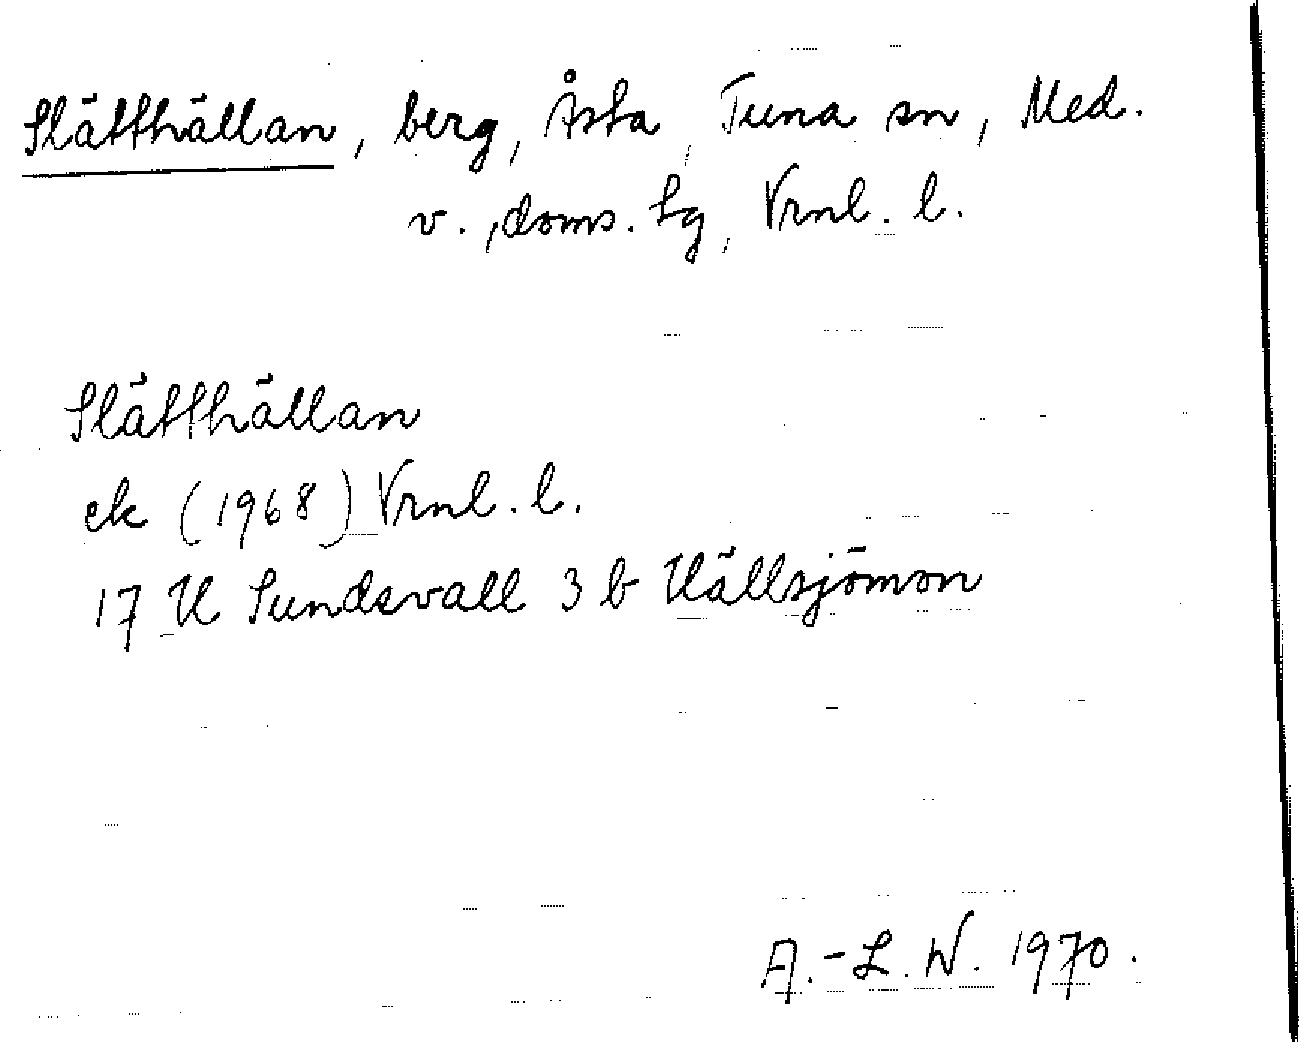 Slätthällan, berg, Åsta, Tuna sn, Med.
v., doms. sg, Vrnl. l.
Slätthällan
ek (1968) Vrnl. l.
17 H Sundsvall 3 b Hällsjömon
A.-L. W. 1970.